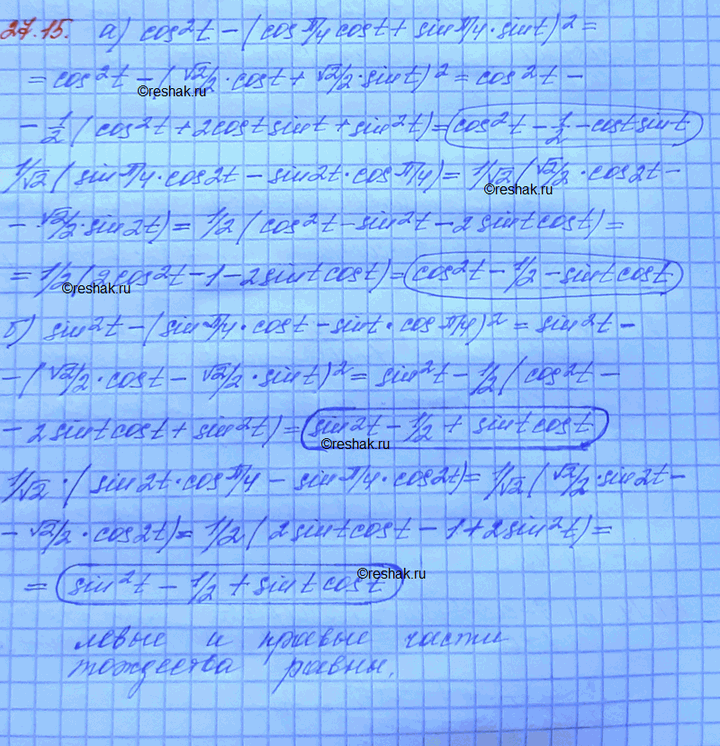 27.15. а) cos²t - (cos π/4 cost + sin π/4 · sint)² =
= cos²t - (√2/2 · cost + √2/2 · sint)² = cos²t -
©reshak.ru
- 1/2 (cos²t + 2costsint + sin²t) = cos²t - 1/2 - costsint
1/√2 (sin π/4 · cos2t - sin2t · cos π/4) = 1/√2 (√2/2 · cos2t -
©reshak.ru
- √2/2 · sin2t) = 1/2 (cos²t - sin²t - 2sintcost) =
= 1/2 (2cos²t - 1 - 2sintcost) = cos²t - 1/2 - sintcost
©reshak.ru
б) sin²t - (sin π/4 · cost - sint · cos π/4)² = sin²t -
- (√2/2 · cost - √2/2 · sint)² = sin²t - 1/2 (cos²t -
- 2sintcost + sin²t) = sin²t - 1/2 + sintcost
©reshak.ru
1/√2 · (sin2t · cos π/4 - sin π/4 · cos2t) = 1/√2 (√2/2 · sin2t -
- √2/2 · cos2t) = 1/2 (2sintcost - 1 + 2sin²t) =
©reshak.ru
= sin²t - 1/2 + sintcost
левые и правые части
тождества равны.